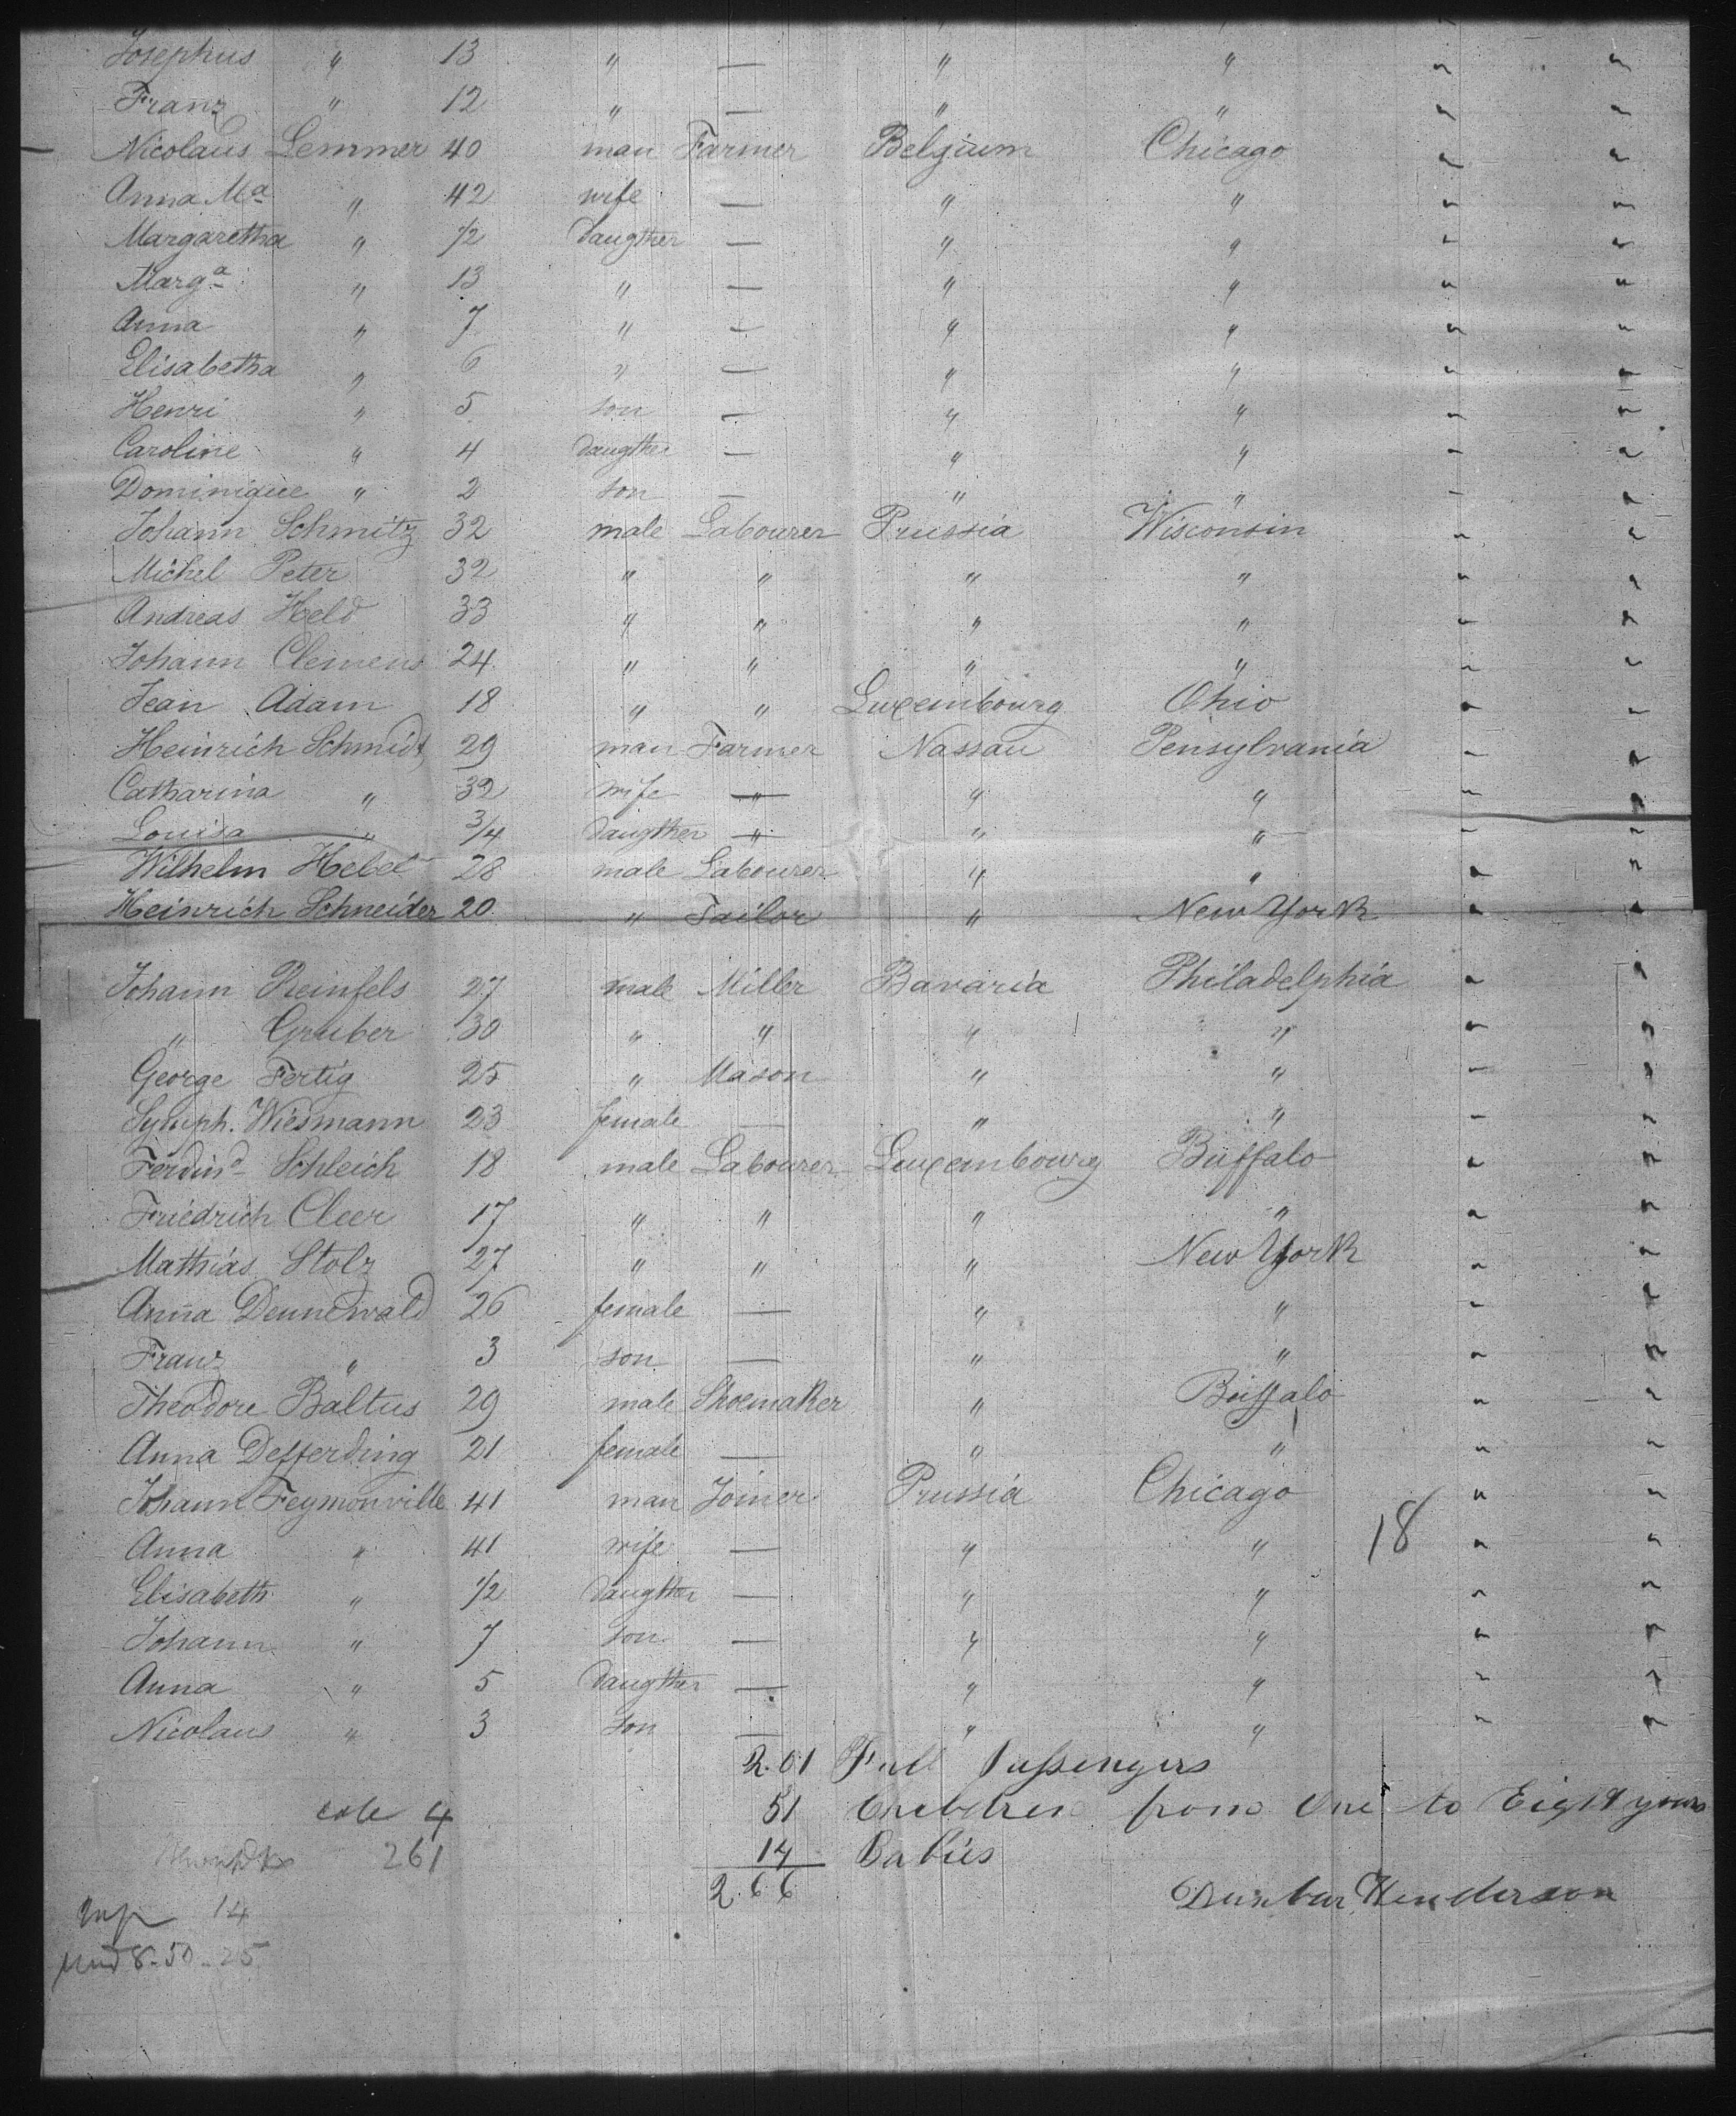 Josephus " 13 " — " " " "
Franz " 12 " — " " " "
Nicolaus Lemmer 40 man Farmer Belgium Chicago " "
Anna Ma " 42 wife — " " " "
Margaretha " 1/2 daugther — " " " "
Marga " 13 " — " " " "
Anna " 7 " — " " " "
Elisabetha " 6 " — " " " "
Henri " 5 son — " " " "
Caroline " 4 daugther — " " " "
Dominique " 2 son — " " " "
Johann Schmitz 32 male Labourer Prussia Wisconsin " "
Michel Peter 32 " " " " " "
Andreas Held 33 " " " " " "
Johann Clemens 24 " " " " " "
Jean Adam 18 " " Luxembourg Ohio " "
Heinrich Schmidt 29 man Farmer Nassau Pensylvania " "
Catharina " 32 wife " " " " "
Louisa " 3/4 daugther " " " " "
Wilhelm Hebel 28 male Labourer " " " "
Heinrich Schneider 20 " Tailor " New York " "
Johann Reinfels 27 male Miller Bavaria Philadelphia " "
" Gruber 30 " " " " " "
George Fertig 25 " Mason " " " "
Symph. Wiesmann 23 female — " " " "
Ferdind Schleich 18 male Labourer Luxembourg Buffalo " "
Friedrich Cleer 17 " " " " " "
Mathias Stolz 27 " " " New York " "
Anna Dennewald 26 female — " " " "
Franz " 3 son — " " " "
Theodore Baltus 29 male Shoemaker " Buffalo " "
Anna Defferding 21 female — " " " "
Johann Feymonville 41 man Joiner Prussia Chicago " "
Anna " 41 wife — " " 18 " "
Elisabeth " 1/2 daugther — " " " "
Johann " 7 son — " " " "
Anna " 5 daugther — " " " "
Nicolaus " 3 son — " " " "
201 Full Passengers
51 Children from One to Eight years
4
14 Babies
261
266
Dunbar Henderson
14
8-50-25